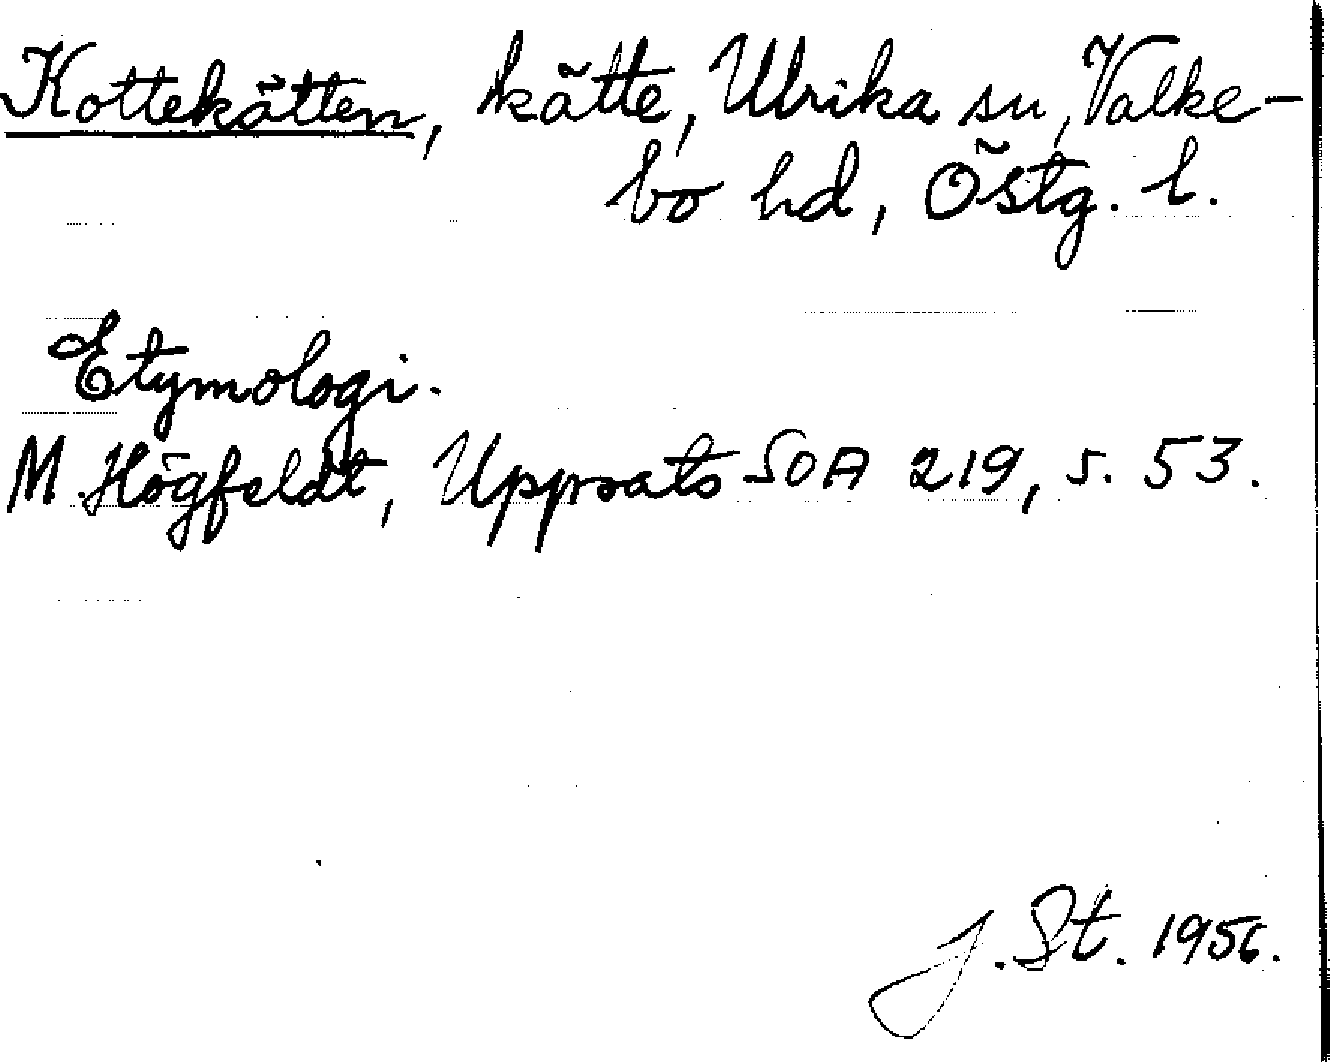 Kottekätten, kätte, Ulrika sn, Valke-
bo hd, Östg. l.
Etymologi.
M. Högfeldt, Uppsats SOA 219, s. 53.
J. St. 1956.